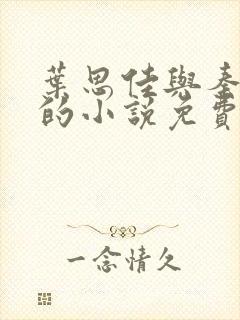 葉思佳與秦
的小說免費
一念情久